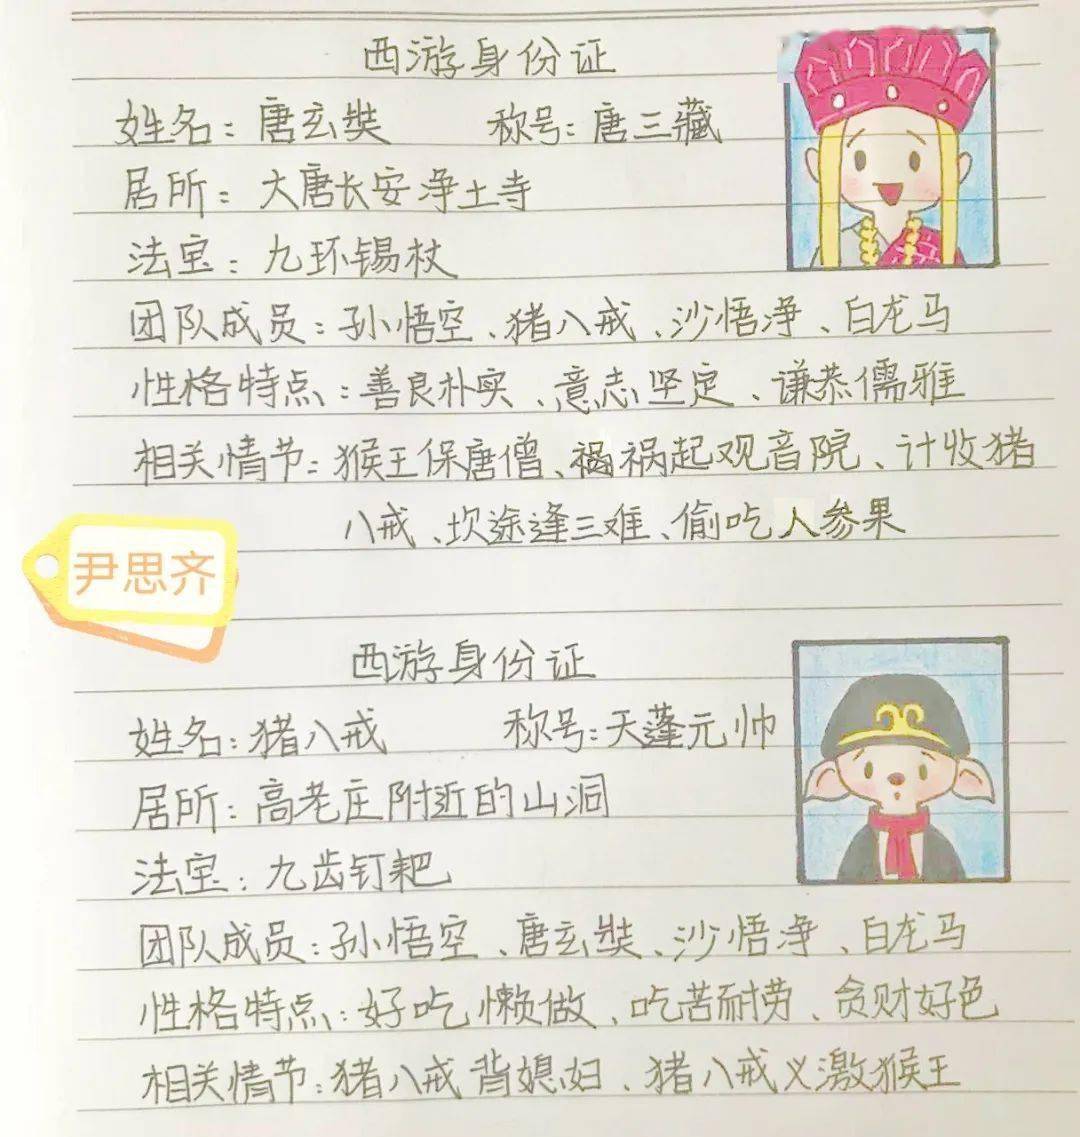 西游身份证
姓名：唐玄奘 称号：唐三藏
居所：大唐长安净土寺
法宝：九环锡杖
团队成员：孙悟空、猪八戒、沙悟净、白龙马
性格特点：善良朴实、意志坚定、谦恭儒雅
相关情节：猴王保唐僧、祸祸起观音院、计收猪
八戒、坎途逢三难、偷吃人参果
尹思齐
西游身份证
姓名：猪八戒 称号：天蓬元帅
居所：高老庄附近的山洞
法宝：九齿钉耙
团队成员：孙悟空、唐玄奘、沙悟净、白龙马
性格特点：好吃懒做、吃苦耐劳、贪财好色
相关情节：猪八戒背媳妇、猪八戒义激猴王